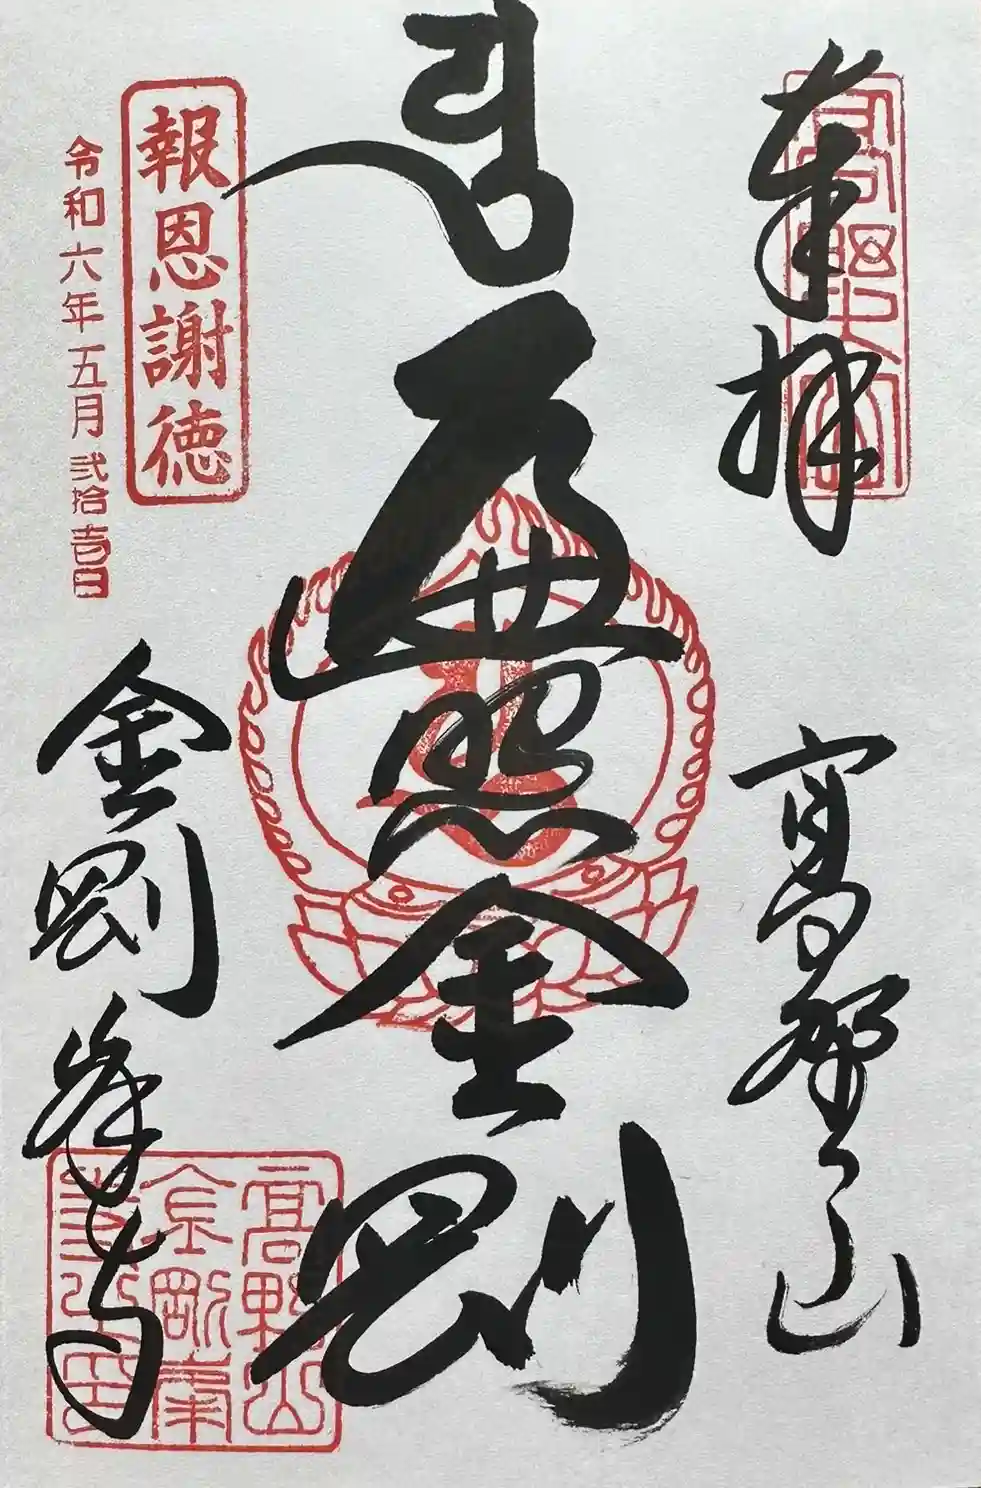 奉拝
高野山
遍照金剛
報恩謝徳
令和六年五月弐拾壱日
金剛峯寺
高野山
金剛峯
寺之印